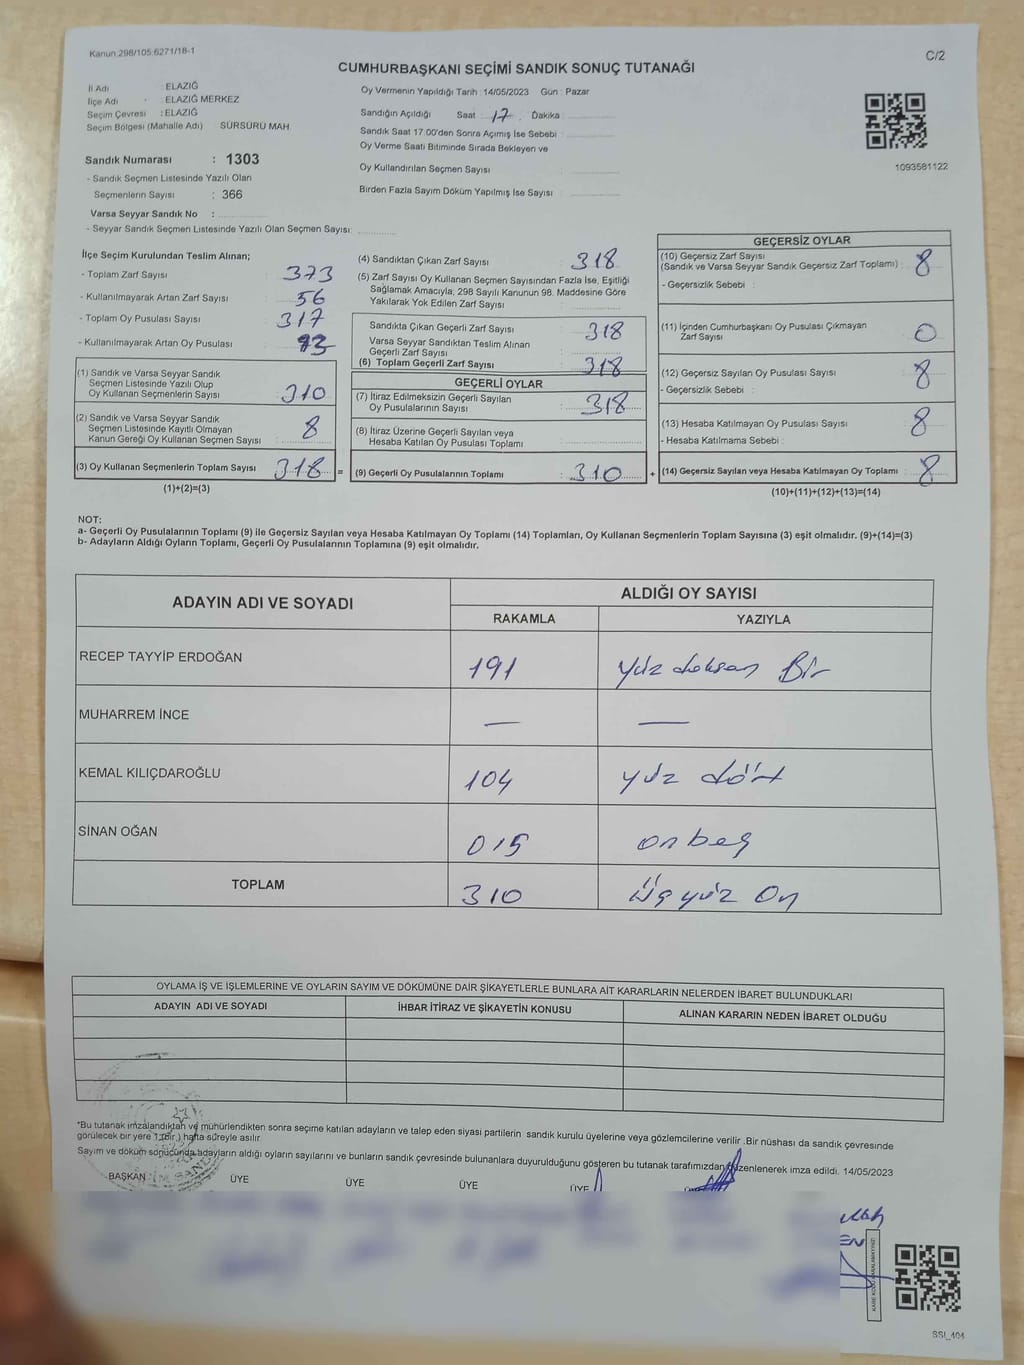 Kanun:298/105:6271/18-1
C/2
CUMHURBAŞKANI SEÇİMİ SANDIK SONUÇ TUTANAĞI
İl Adı : ELAZIĞ
İlçe Adı : ELAZIĞ MERKEZ
Seçim Çevresi : ELAZIĞ
Seçim Bölgesi (Mahalle Adı) SÜRSÜRÜ MAH.
Sandık Numarası : 1303
- Sandık Seçmen Listesinde Yazılı Olan
Seçmenlerin Sayısı : 366
Varsa Seyyar Sandık No :
- Seyyar Sandık Seçmen Listesinde Yazılı Olan Seçmen Sayısı:
Oy Vermenin Yapıldığı Tarih :14/05/2023 Gün : Pazar
Sandığın Açıldığı Saat : 17 Dakika :
Sandık Saat 17.00'den Sonra Açımış İse Sebebi :
Oy Verme Saati Bitiminde Sırada Bekleyen ve
Oy Kullandırılan Seçmen Sayısı :
Birden Fazla Sayım Döküm Yapılmış İse Sayısı :
1093581122
İlçe Seçim Kurulundan Teslim Alınan;
- Toplam Zarf Sayısı : 373
- Kullanılmayarak Artan Zarf Sayısı : 56
- Toplam Oy Pusulası Sayısı : 317
- Kullanılmayarak Artan Oy Pusulası :
(1) Sandık ve Varsa Seyyar Sandık
Seçmen Listesinde Yazılı Olup
Oy Kullanan Seçmenlerin Sayısı : 310
(2) Sandık ve Varsa Seyyar Sandık
Seçmen Listesinde Kayıtlı Olmayan
Kanun Gereği Oy Kullanan Seçmen Sayısı : 8
(3) Oy Kullanan Seçmenlerin Toplam Sayısı : 318 =
(1)+(2)=(3)
(4) Sandıktan Çıkan Zarf Sayısı : 318
(5) Zarf Sayısı Oy Kullanan Seçmen Sayısından Fazla İse, Eşitliği
Sağlamak Amacıyla, 298 Sayılı Kanunun 98. Maddesine Göre
Yakılarak Yok Edilen Zarf Sayısı :
Sandıkta Çıkan Geçerli Zarf Sayısı : 318
Varsa Seyyar Sandıktan Teslim Alınan
Geçerli Zarf Sayısı :
(6) Toplam Geçerli Zarf Sayısı : 318
GEÇERLİ OYLAR
(7) İtiraz Edilmeksizin Geçerli Sayılan
Oy Pusulalarının Sayısı : 318
(8) İtiraz Üzerine Geçerli Sayılan veya
Hesaba Katılan Oy Pusulası Toplamı :
(9) Geçerli Oy Pusulalarının Toplamı : 310 +
GEÇERSİZ OYLAR
(10) Geçersiz Zarf Sayısı
(Sandık ve Varsa Seyyar Sandık Geçersiz Zarf Toplamı) : 8
- Geçersizlik Sebebi :
(11) İçinden Cumhurbaşkanı Oy Pusulası Çıkmayan
Zarf Sayısı : 0
(12) Geçersiz Sayılan Oy Pusulası Sayısı : 8
- Geçersizlik Sebebi :
(13) Hesaba Katılmayan Oy Pusulası Sayısı : 8
- Hesaba Katılmama Sebebi :
(14) Geçersiz Sayılan veya Hesaba Katılmayan Oy Toplamı : 8
(10)+(11)+(12)+(13)=(14)
NOT:
a- Geçerli Oy Pusulalarının Toplamı (9) ile Geçersiz Sayılan veya Hesaba Katılmayan Oy Toplamı (14) Toplamları, Oy Kullanan Seçmenlerin Toplam Sayısına (3) eşit olmalıdır. (9)+(14)=(3)
b- Adayların Aldığı Oyların Toplamı, Geçerli Oy Pusulalarının Toplamına (9) eşit olmalıdır.
ADAYIN ADI VE SOYADI
ALDIĞI OY SAYISI
RAKAMLA YAZIYLA
RECEP TAYYİP ERDOĞAN 191 Yüz doksan Bir
MUHARREM İNCE — —
KEMAL KILIÇDAROĞLU 104 yüz dört
SİNAN OĞAN 015 on beş
TOPLAM 310 Üç yüz On
OYLAMA İŞ VE İŞLEMLERİNE VE OYLARIN SAYIM VE DÖKÜMÜNE DAİR ŞİKAYETLERLE BUNLARA AİT KARARLARIN NELERDEN İBARET BULUNDUKLARI
ADAYIN ADI VE SOYADI İHBAR İTİRAZ VE ŞİKAYETİN KONUSU ALINAN KARARIN NEDEN İBARET OLDUĞU
*Bu tutanak imzalandıktan ve mühürlendikten sonra seçime katılan adayların ve talep eden siyasi partilerin sandık kurulu üyelerine veya gözlemcilerine verilir .Bir nüshası da sandık çevresinde
görülecek bir yere 1 (bir ) hafta süreyle asılır.
Sayım ve döküm sonucunda adayların aldığı oyların sayılarını ve bunların sandık çevresinde bulunanlara duyurulduğunu gösteren bu tutanak tarafımızdan düzenlenerek imza edildi. 14/05/2023
BAŞKAN ÜYE ÜYE ÜYE ÜYE
KARE KODU KARALAMAYINIZ!
SSI_404